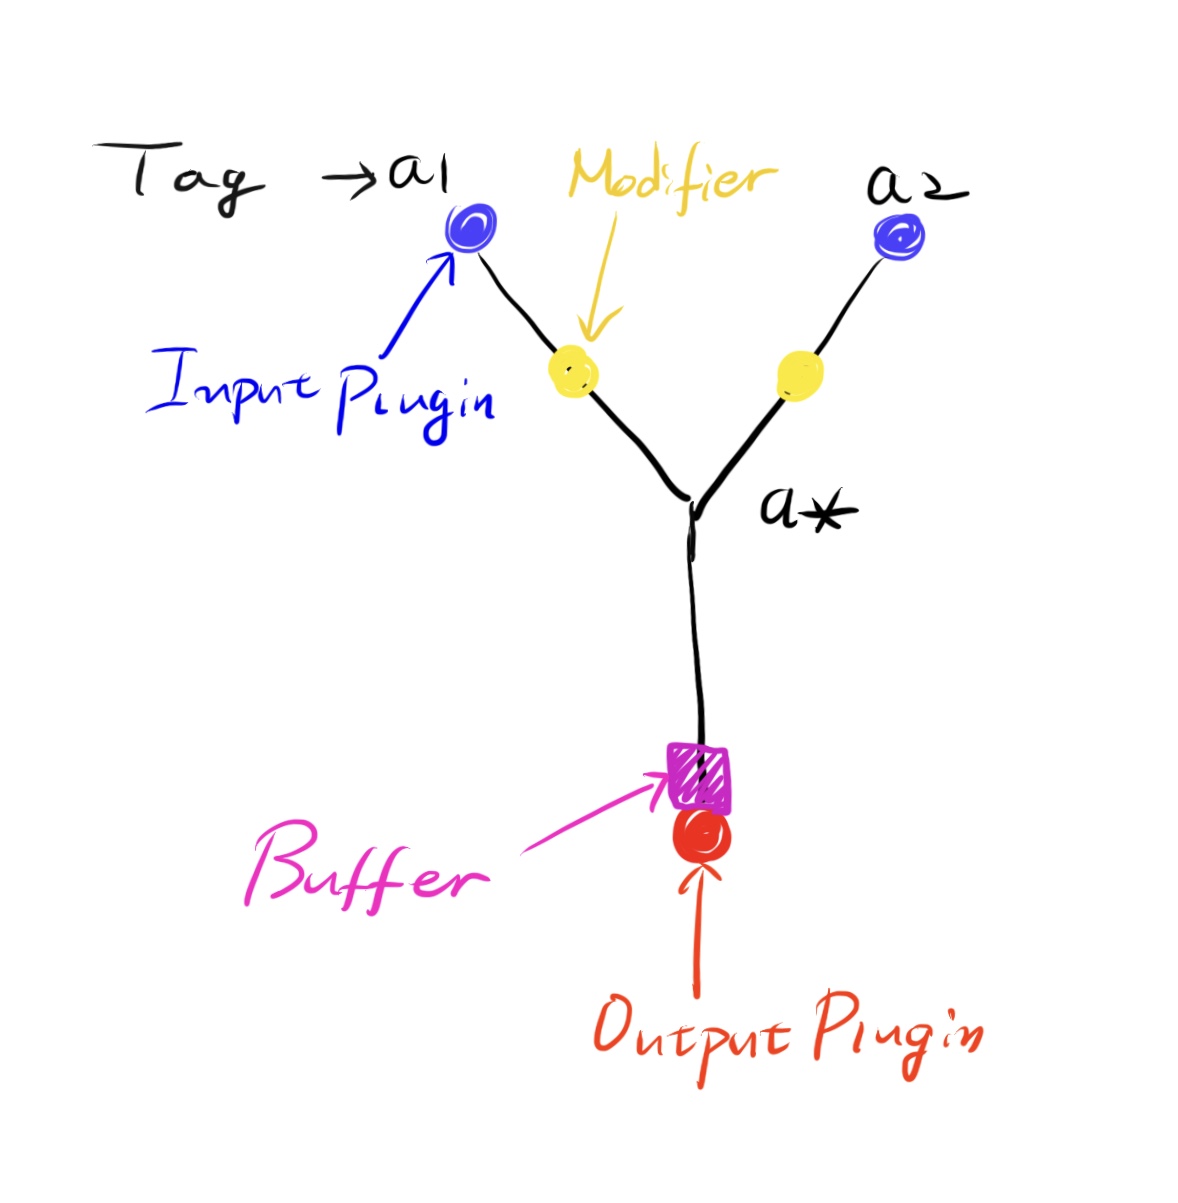 Tag → a1
Modifier
a2
Input Plugin
a*
Buffer
Output Plugin